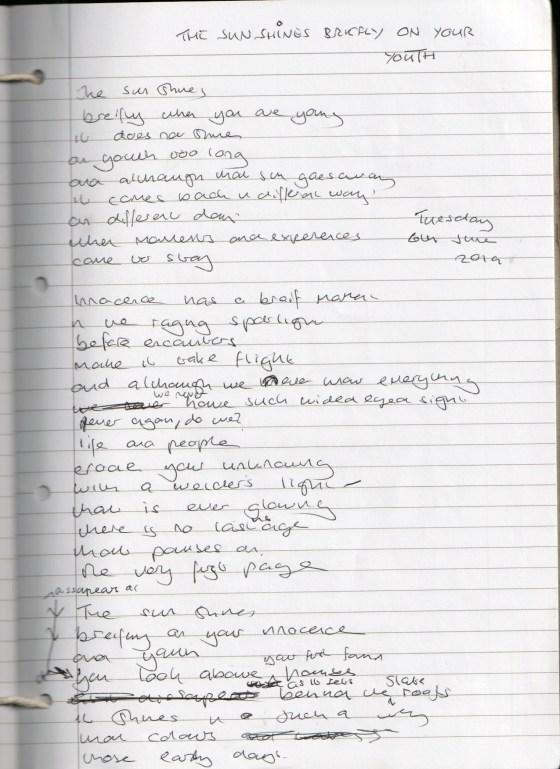 THE SUN SHINES BRIEFLY ON YOUR
YOUTH
The sun shines
breifly when you are young
it does not shine
on youth too long
and although that sun goes away
it comes back in different ways
on different days
when moments and experiences
come to stay
Tuesday
6th June
2019
Innocence has a breif
in the raging spotlight
before encounters
make it take flight
and although we
everything
we never
have such wided eyed sight
never again, do we?
life and people
erode your unknowing
with a welder's light
that is ever glowing
there is no
that pauses on
the very first page
The sun shines
breifly on your innocence
and youth
you look above
your first found
houses
as it sets
behind the
slate
roofs
it shines in such a way
that colours
those early days